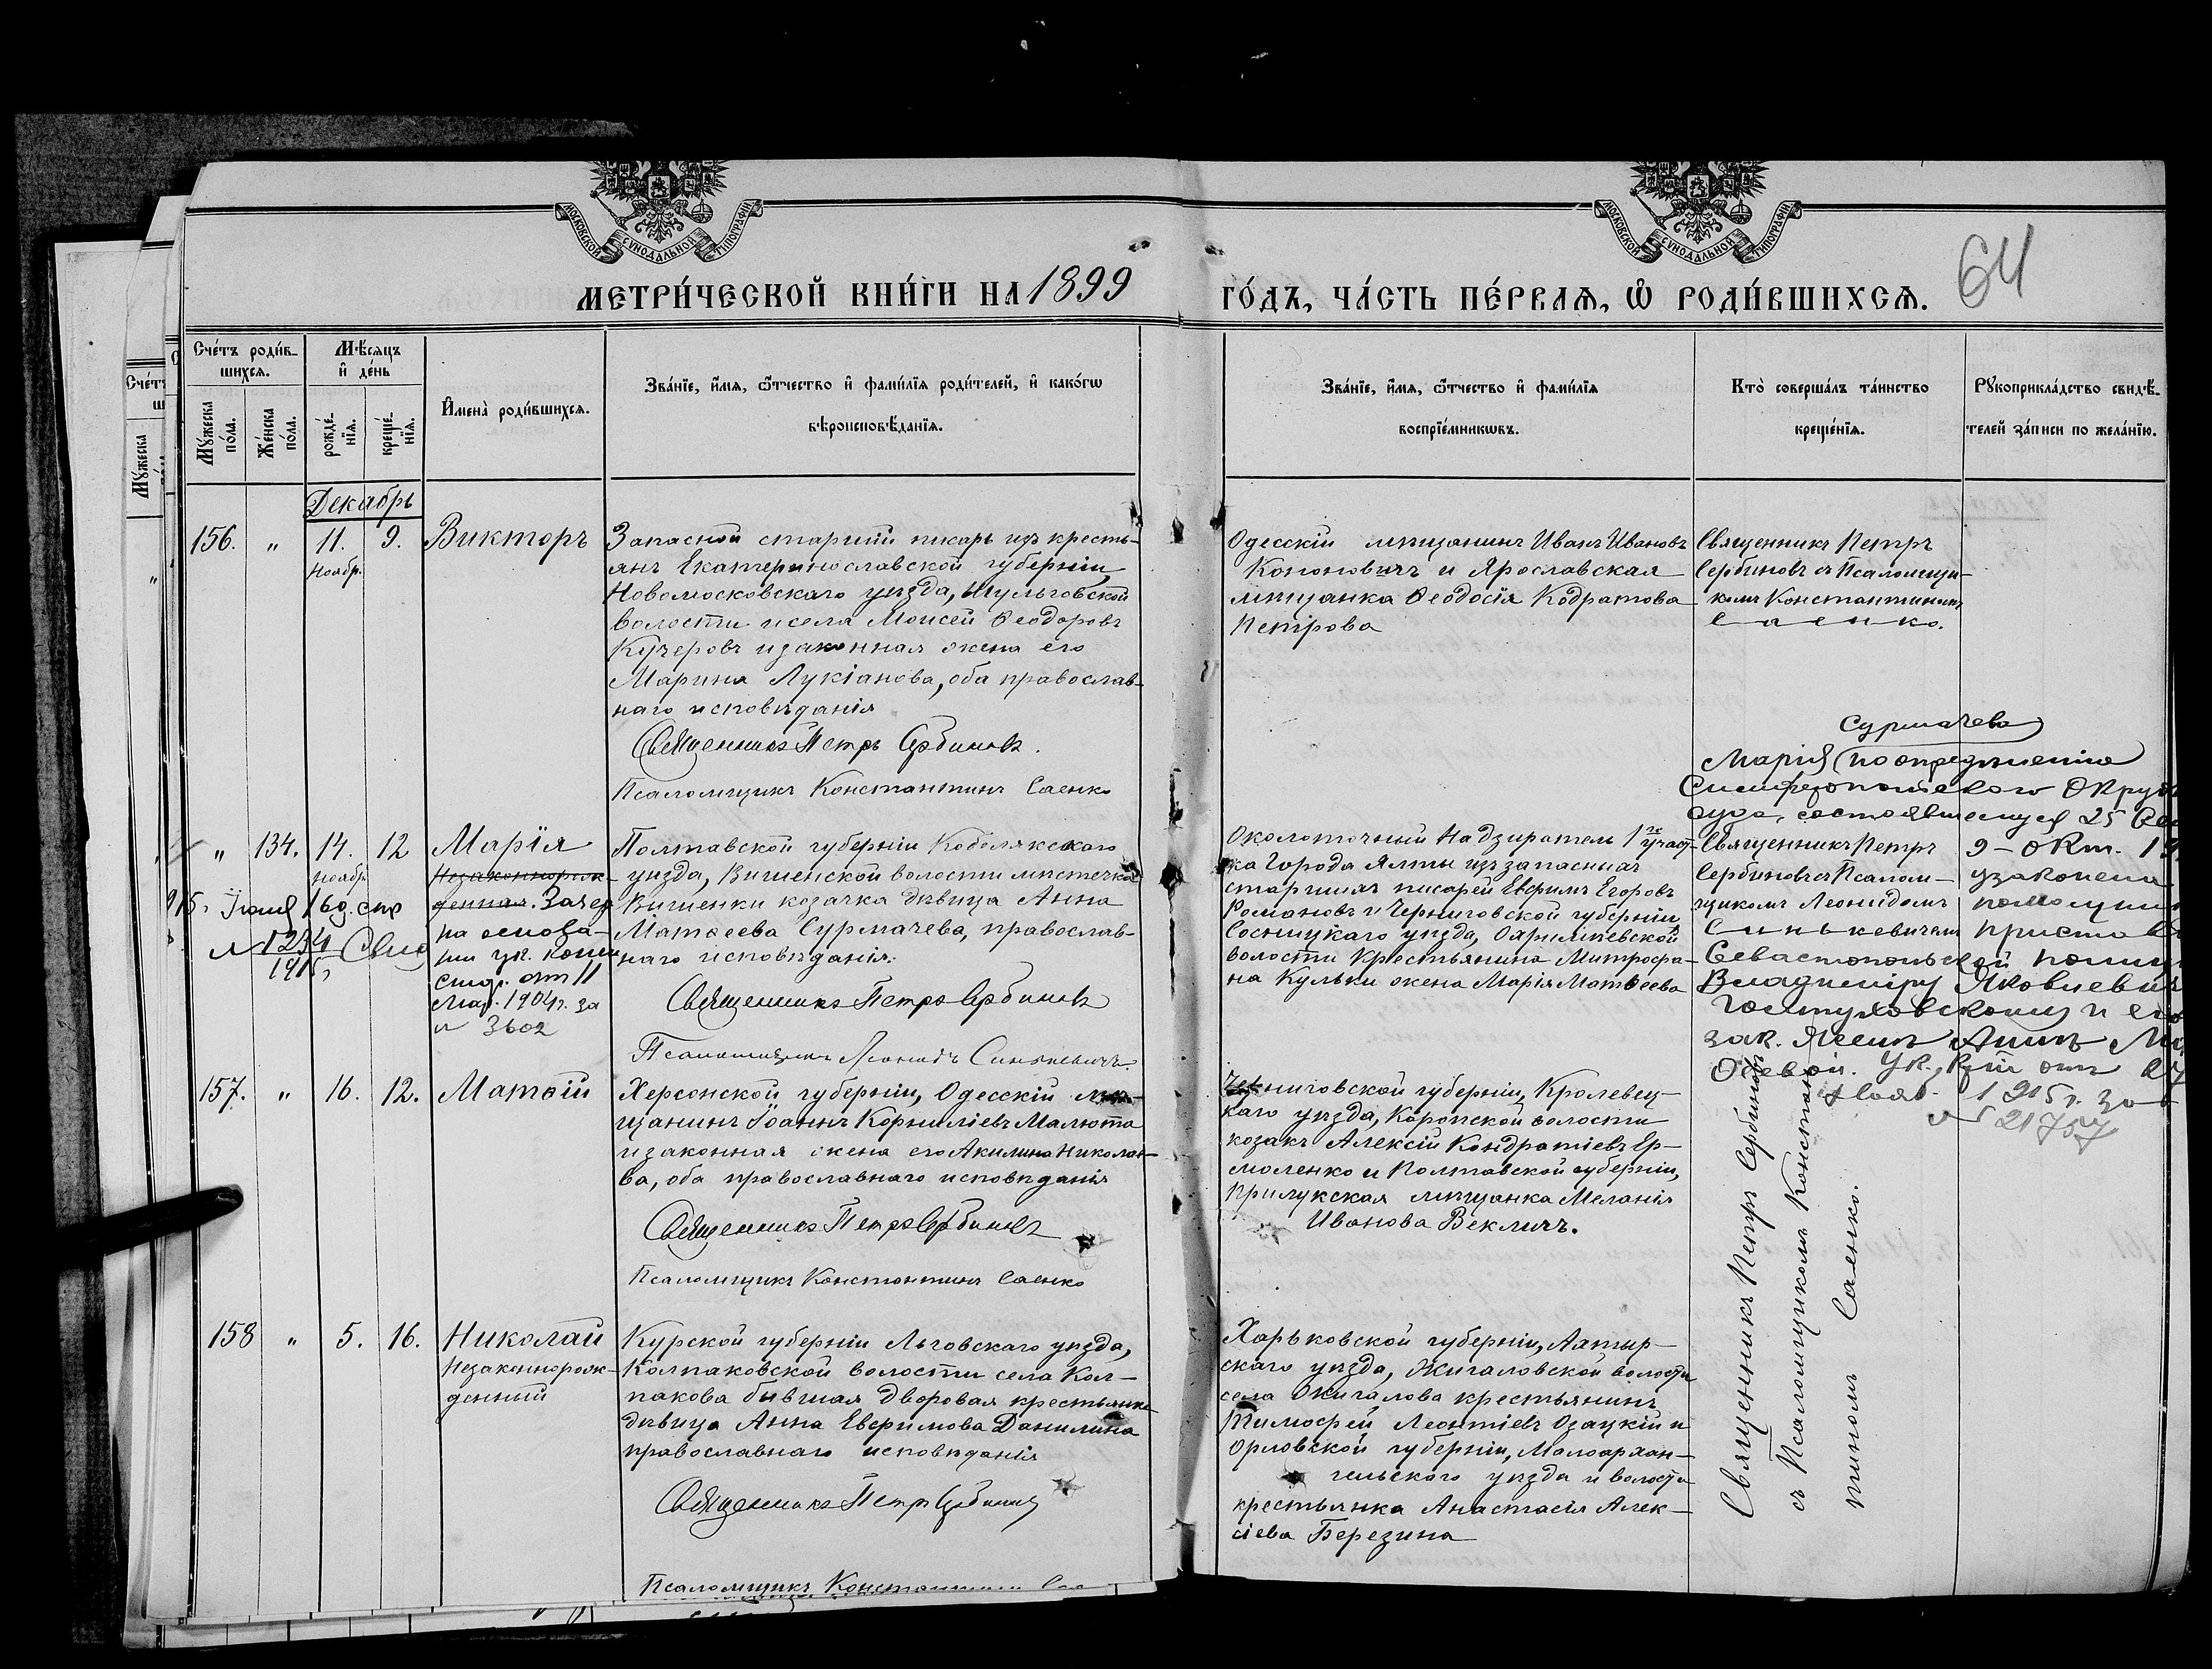 МОСКОВСКОЙ СѴНОДАЛЬНОЙ ТИПОГРАФІИ
МОСКОВСКОЙ СѴНОДАЛЬНОЙ ТИПОГРАФІИ
64
МЕТРИ́ЧЕСКОЙ КНИ́ГИ НА 1899 ГО́ДЪ, ЧА́СТЬ ПЕ́РВАЯ, Ѡ҆ РОДИ́ВШИХСЯ.
Сче́тъ роди́в-
шихся.
Му́жеска по́ла.
Же́нска по́ла.
Мѣ́сяцъ
и҆ де́нь
рожде́-
нїя.
креще́-
нїя.
И҆мена̀ роди́вшихся.
Зва́нїе, и҆́мя, ѻ҆́тчество и҆ фами́лїя роди́телей, и҆ како́гѡ
вѣроисповѣ́данїя.
Зва́нїе, и҆́мя, ѻ҆́тчество и҆ фами́лїя
воспрїе́мникѡвъ.
Кто̀ соверша́лъ та́инство
креще́нїя.
Рꙋкоприкла́дство свидѣ́-
телей за́писи по жела́нїю.
Декабрь
156. " 11. 9. Викторъ
Ноябр.
Запасной старшій писарь изъ кресть-
янъ Екатеринославской губерніи
Новомосковскаго уѣзда,
волости и села Моисей Ѳеодоровъ
Кучеровъ и законная жена его
Марина Лукіанова, оба православ-
наго исповѣданія
Священникъ Петръ Сербиновъ.
Псаломщикъ Константинъ Саенко
Одесскій мѣщанинъ Иванъ Ивановъ
Кононовичъ и Ярославская
мѣщанка Ѳеодосія Кодратова
Петрова
Священникъ Петръ
Сербиновъ съ Псаломщи-
комъ Константиномъ
Саенко.
" 134. 14. 12 Марія
Ноябр
Незаконнорож-
денная. Зачер
на основа-
ніи ук. Конси
стор. отъ 11
Мар. 1904г. за
№ 3602
915. Іюля 16 д.
№ 1234
1915 г.
Полтавской губерніи Кобелякскаго
уѣзда, Вишенской волости мѣстечка
Вишенки козачка дѣвица Анна
Матѳеева Сурмачева, православ-
наго исповѣданія.
Священникъ Петръ Сербиновъ
Псаломщикъ Леонидъ Синькевичъ.
Околоточный Надзиратель 1го участ-
ка Города Ялты изъ запасныхъ
старшихъ писарей Евфимъ Егоровъ
Романовъ и Черниговской губерніи,
Сосницкаго уѣзда,
волости Крестьянина Митрофа-
на Кульки жена Марія Матѳеева
Священникъ Петръ
Сербиновъ съ Псалом-
щикомъ Леонидомъ
Синькевичемъ
Сурмачева
Марія по опредѣленію
Симферопольскаго Окруж
суда, состоявшемуся 25
9 – Окт. 19
узаконена
помощник
пристава
Севастопольской полиц
Владиміру Яковлевич
и его
зак. женѣ Аннѣ Ма
Ѳеевой. Ук. отъ 27
Нояб. 1915 г. за
№ 21757
157. " 16. 12. Матѳій
Херсонской губерніи, Одесскій мѣ-
щанинъ Іоаннъ Корниліевъ Малюта
и законная жена его Акилина Николае-
ва, оба православнаго исповѣданія
Священникъ Петръ Сербиновъ
Псаломщикъ Константинъ Саенко
Черниговской губерніи, Кролевец-
каго уѣзда, Коропской волости
козакъ Алексій Кондратіевъ Ер-
моленко и Полтавской губерніи,
Прилукская мѣщанка Меланія
Иванова Векличъ.
Священникъ Петръ Сербиновъ
съ Псаломщикомъ Констан-
тиномъ Саенко.
158 " 5. 16. Николай
Незаконнорож-
денный
Курской губерніи Льговскаго уѣзда,
Колпаковской волости села Кол-
пакова бывшая дворовая крестьянка
дѣвица Анна Евфимова Данилина
православнаго исповѣданія
Священникъ Петръ Сербиновъ
Псаломщикъ Константинъ
Харьковской губерніи, Ахтыр-
скаго уѣзда, Жигаловской волости
села Жигалова крестьянинъ
Тимофей Леонтіевъ Озацкій и
Орловской губерніи, Малоархан-
гельскаго уѣзда и волости
крестьянка Анастасія Алек-
сіева Березина